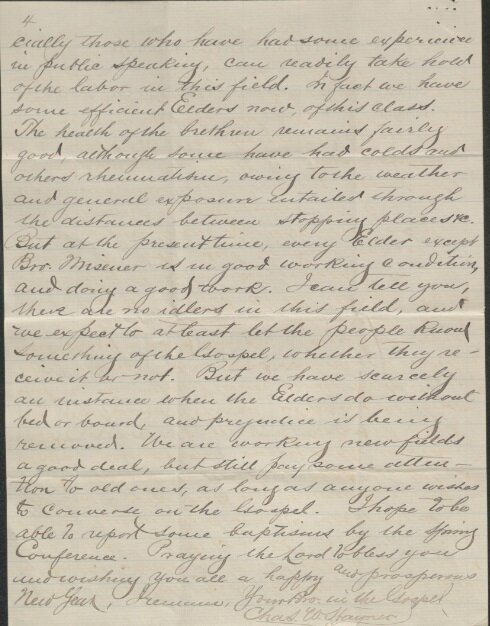 4
cially those who have had some experience
in public speaking, can readily take hold
of the labor in this field. In fact we have
some efficient Elders now, of this class.
The health of the brethren remains fairly
good, although some have had colds and
others rheumatism, owing to the weather
and general exposure entailed through
the distances between stopping places &c.
But at the present time, every Elder except
Bro. Misener is in good working condition,
and doing a good work. I can tell you,
there are no idlers in this field, and
we expect to at least let the people know
something of the Gospel, whether they re-
ceive it or not. But we have scarcely
an instance when the Elders do without
bed or board, and prejudice is being
removed. We are working new fields
a good deal, but still pay some atten-
tion to old ones, as long as anyone wishes
to converse on the Gospel. I hope to be
able to report some baptisms by the Spring
Conference. Praying the Lord to bless you
and wishing you all a happy and prosperous
New Year, I remain, Your Bro. in the Gospel
Chas. W.